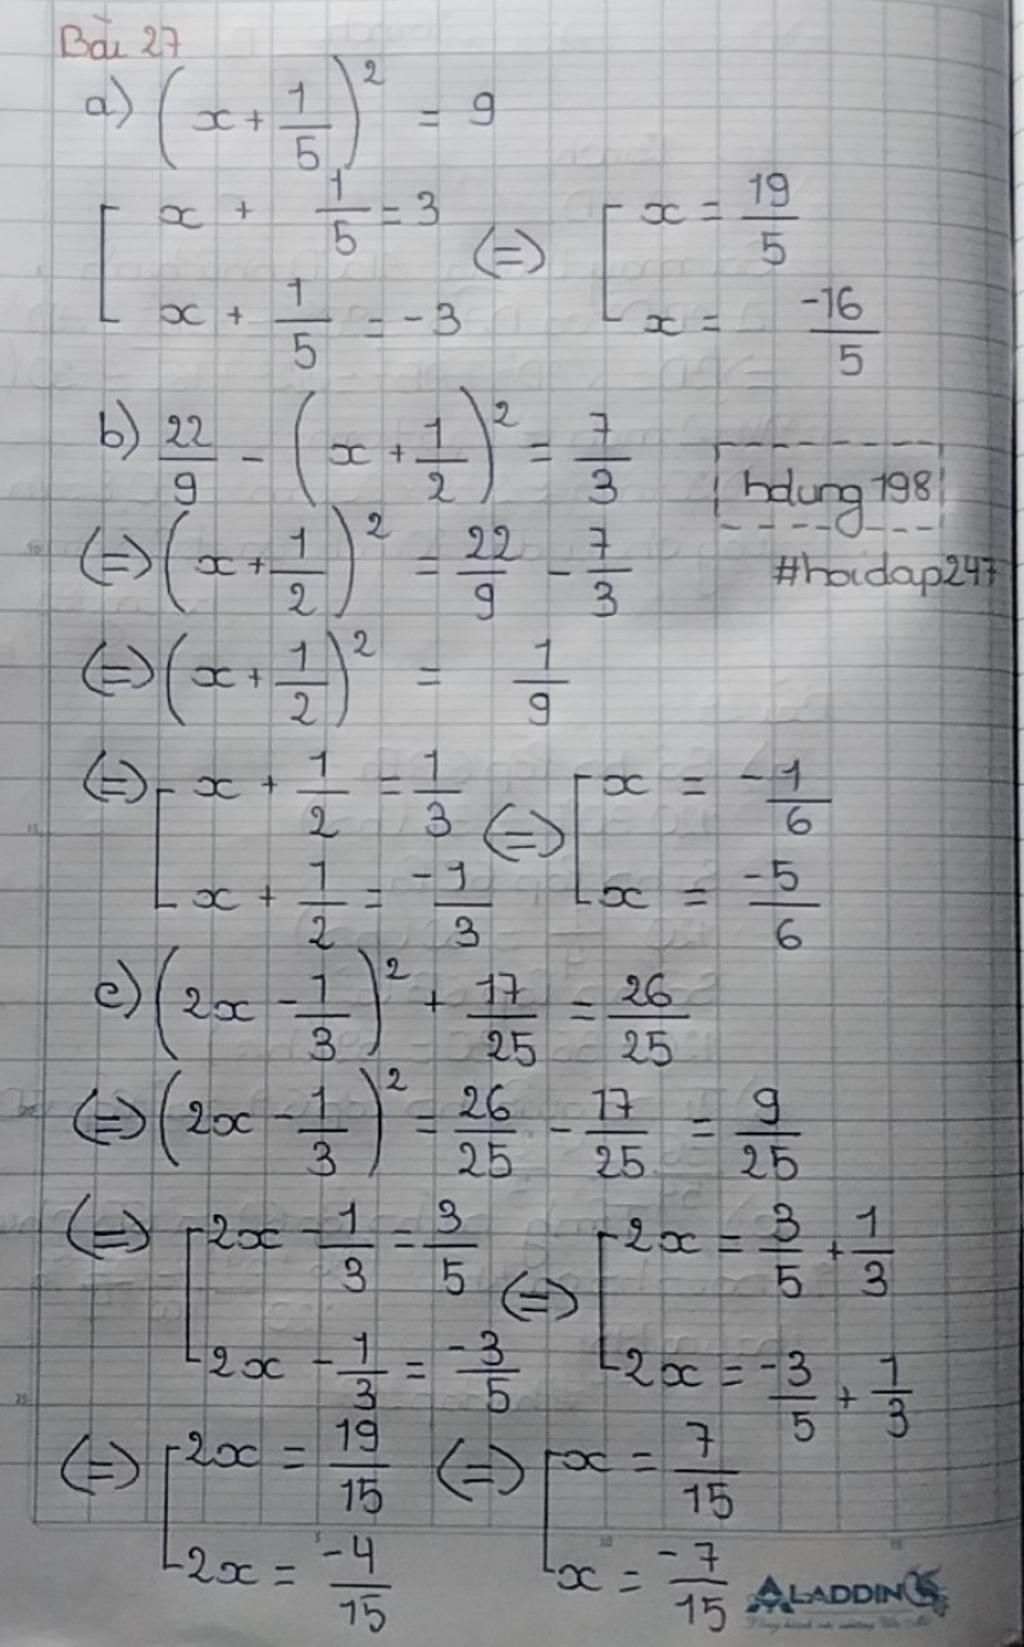 Bài 27
a) (x + 1/5)² = 9
[ x + 1/5 = 3 (=) [ x = 19/5
x + 1/5 = -3 x = -16/5
b) 22/9 - (x + 1/2)² = 7/3
hdung198
(=) (x + 1/2)² = 22/9 - 7/3
#hoidap247
(=) (x + 1/2)² = 1/9
(=) [ x + 1/2 = 1/3 (=) [ x = -1/6
x + 1/2 = -1/3 x = -5/6
c) (2x - 1/3)² + 17/25 = 26/25
(=) (2x - 1/3)² = 26/25 - 17/25 = 9/25
(=) [ 2x - 1/3 = 3/5 (=) [ 2x = 3/5 + 1/3
2x - 1/3 = -3/5 2x = -3/5 + 1/3
(=) [ 2x = 19/15 (=) [ x = 7/15
2x = -4/15 x = -7/15
ALADDIN